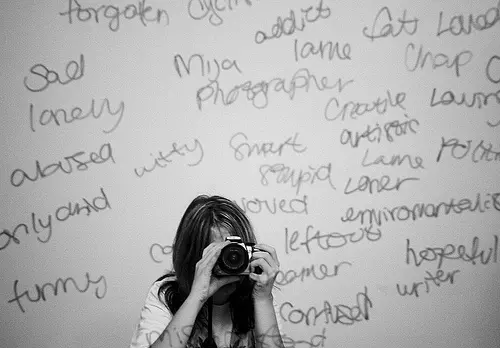 forgotten
addict
fat
Loved
lame
Cheap
Sad
Mija
photographer
lonely
Creative
Loving
artistic
abused
witty
Smart
Lame
Politic
stupid
Loner
only child
loved
environmentalist
leftout
hopeful
funny
dreamer
writer
confused
misunderstood